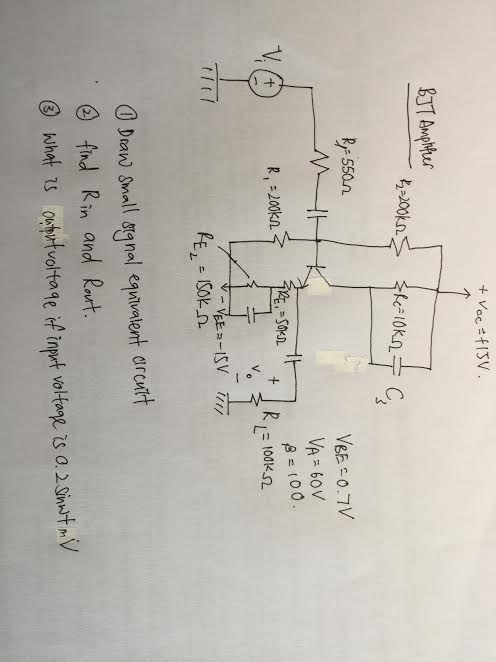 BJT Amplifier
+Vcc=+15V.
R2=200kΩ
Rc=10kΩ
C3
Vi
+
-
Ri=550Ω
R1=200kΩ
RE1=50kΩ
RE2=150kΩ
-VEE=-15V
+
Vo
-
RL=100kΩ
VBE=0.7V
VA=60V
β=100.
① Draw small signal equivalent circuit
② find Rin and Rout.
③ What is output voltage if input voltage is 0.2sinwt mV